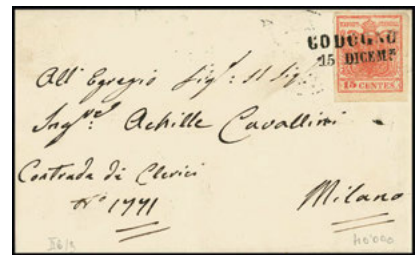 CODOGNO
15 DICEM.E
15 CENTES
All' Egregio Sig.: Il Sig.
Ing.re: Achille Cavallini
Contrada di Clerici
N.o 1771
Milano
40'000